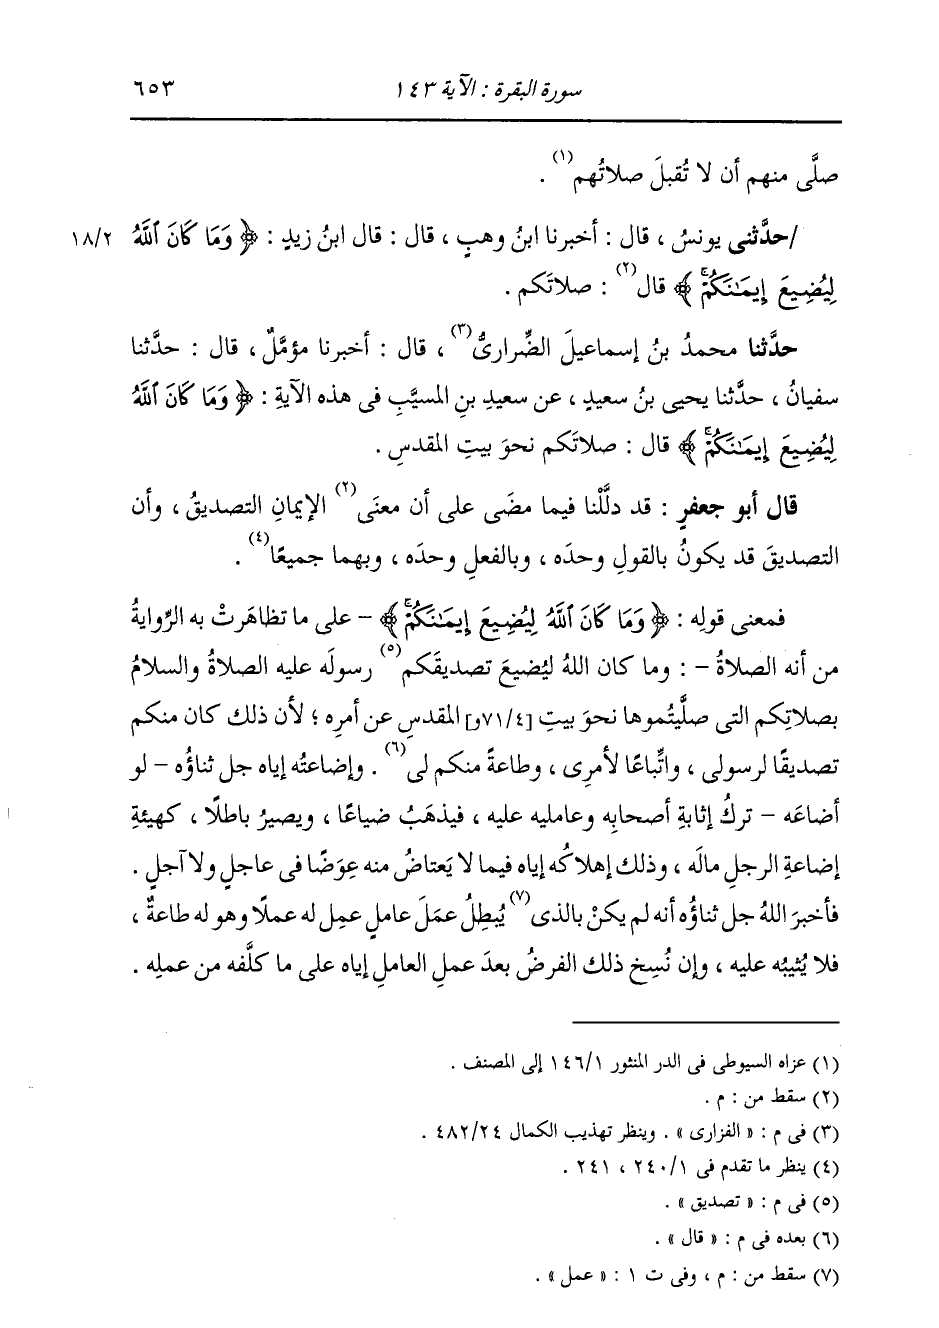 سورة البقرة : الآية ١٤٣ ٦٥٣
صلَّى منهم أن لا تُقبلَ صلاتُهم(١) .
/حدَّثنى يونسُ ، قال : أخبرنا ابنُ وهبٍ ، قال : قال ابنُ زيدٍ : ﴿ وَمَا كَانَ ٱللَّهُ ١٨/٢
لِيُضِيعَ إِيمَـٰنَكُمْۚ ﴾ قال(٢) : صلاتَكم .
حدَّثنا محمدُ بنُ إسماعيلَ الضِّرارىُّ(٣) ، قال : أخبرنا مؤمَّلٌ ، قال : حدَّثنا
سفيانُ ، حدَّثنا يحيى بنُ سعيدٍ ، عن سعيدِ بنِ المسيَّبِ فى هذه الآيةِ : ﴿ وَمَا كَانَ ٱللَّهُ
لِيُضِيعَ إِيمَـٰنَكُمْۚ ﴾ قال : صلاتَكم نحوَ بيتِ المقدسِ .
قال أبو جعفرٍ : قد دلَّلْنا فيما مضَى على أن معنَى(٢) الإيمانِ التصديقُ ، وأن
التصديقَ قد يكونُ بالقولِ وحدَه ، وبالفعلِ وحدَه ، وبهما جميعًا(٤) .
فمعنى قولِه : ﴿ وَمَا كَانَ ٱللَّهُ لِيُضِيعَ إِيمَـٰنَكُمْۚ ﴾ – على ما تظاهَرتْ به الرِّوايةُ
من أنه الصلاةُ – : وما كان اللهُ ليُضيعَ تصديقَكم(٥) رسولَه عليه الصلاةُ والسلامُ
بصلاتِكم التى صلَّيتُموها نحوَ بيتِ [٧١/٤و] المقدسِ عن أمرِه ؛ لأن ذلك كان منكم
تصديقًا لرسولى ، واتِّباعًا لأمرِى ، وطاعةً منكم لى(٦) . وإضاعتُه إياه جل ثناؤُه – لو
أضاعَه – تركُ إثابةِ أصحابِه وعامليه عليه ، فيذهَبُ ضياعًا ، ويصيرُ باطلًا ، كهيئةِ
إضاعةِ الرجلِ مالَه ، وذلك إهلاكُه إياه فيما لا يَعتاضُ منه عِوَضًا فى عاجلٍ ولا آجلٍ .
فأخبرَ اللهُ جل ثناؤُه أنه لم يكنْ بالذى(٧) يُبطِلُ عمَلَ عاملٍ عمِل له عملًا وهو له طاعةٌ ،
فلا يُثيبُه عليه ، وإن نُسِخ ذلك الفرضُ بعدَ عملِ العاملِ إياه على ما كلَّفه من عملِه .
(١) عزاه السيوطى فى الدر المنثور ١٤٦/١ إلى المصنف .
(٢) سقط من : م .
(٣) فى م : « الفزارى » . وينظر تهذيب الكمال ٤٨٢/٢٤ .
(٤) ينظر ما تقدم فى ٢٤٠/١ ، ٢٤١ .
(٥) فى م : « تصديق » .
(٦) بعده فى م : « قال » .
(٧) سقط من : م ، وفى ت ١ : « عمل » .